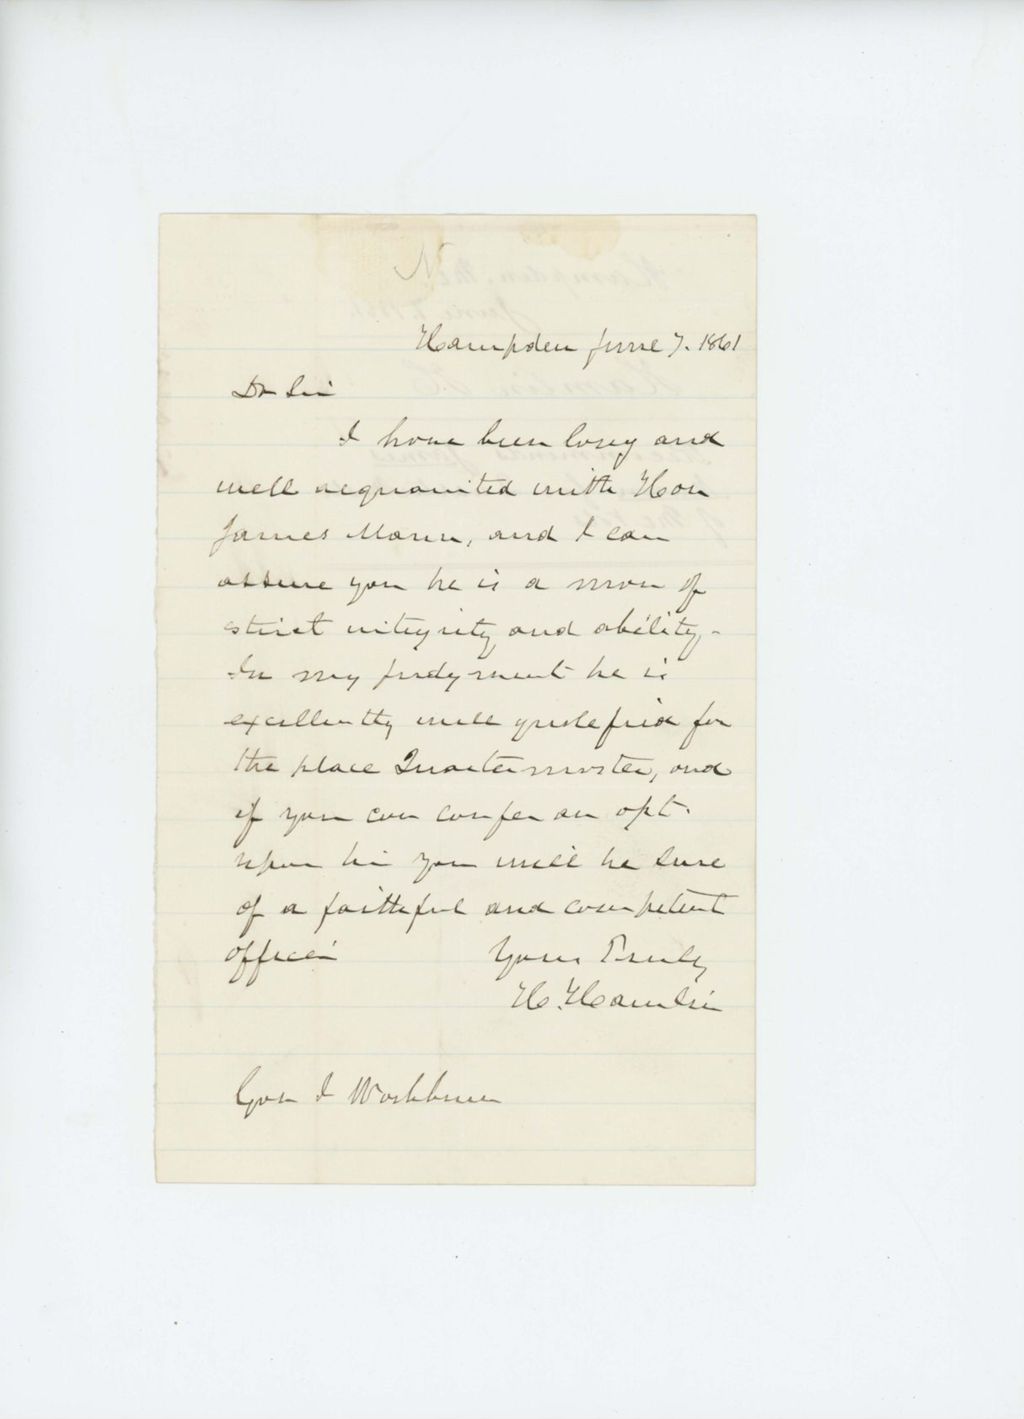 N
Hampden June 7. 1861
Dr Sir
I have been long and
well acquainted with Hon
James Mann, and I can
assure you he is a man of
strict integrity and ability,-
In my judgment he is
excellently well qualified for
the place Quartermaster, and
if you can confer an apt.
upon him you will be sure
of a faithful and competent
officer
Yours Truly
H. Hamlin
Gov I Washburn